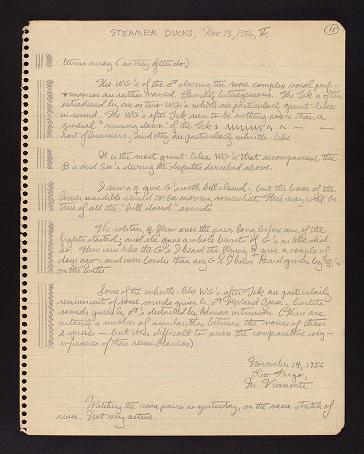 STEAMER DUCKS, Nov. 13, 1956, V
11
turns away (as they often do)
The WG's of the ♂ during the more complex vocal perf-
ormances are rather varied. Possibly heterogeneous. The Tck is often
introduced by one or two WG's which are particularly grunt-like
in sound. The WG's after Tck seem to be nothing more than a
gradual "running down" of the Tck
of Business, and they are particularly whistle-like
It is the most grunt-like WG's that accompanied the
B's and Sn's during the disputes described above.
I saw a ♀ give G's with bill closed, but the base of the
lower mandible could be seen moving somewhat. This may well be
true of all the "bill closed" sounds.
The solitary ♀ flew over the pair long before any of the
fights started, and she gave a whole burst of G's as she did
so. These were like the G's I heard the flying ♀ give a couple of
days ago, and were louder than any G's I have heard given by ♀'s
on the water
Some of the whistle-like WG's after Tck are particularly
reminiscent of some sounds given by ♂ Upland Geese.
sounds given by ♂'s disturbed by human intrusion. (There are
certainly a number of similarities between the noises of these
2 species - but it is difficult to assess the comparative sig-
nificance of these resemblances)
November 14, 1956
Rio
Watching the same pairs as yesterday, on the same stretch of
river. Not very active